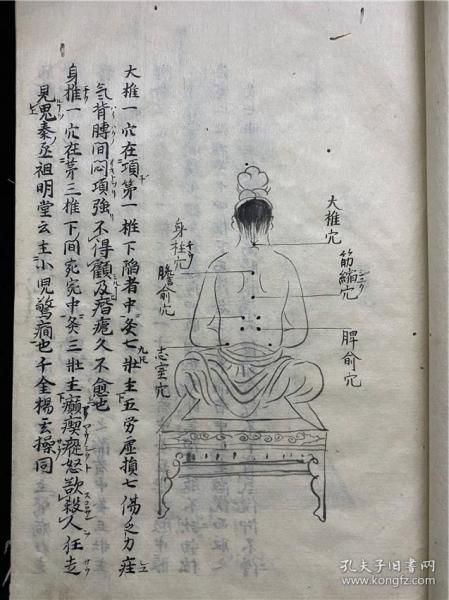 大椎一穴在項第一椎下陷者中灸七九壯主五労虚損七傷乏力痓
气背膊間悶項強不得顧及瘖瘧久不愈也
身椎一穴在第三椎下間宛宛中灸三壯主癲瘈瘲怒欲殺人狂走
見鬼秦丞祖明堂云主小児驚癇也千金楊玄操同
大椎穴
筋縮穴
脾俞穴
身柱穴
膽俞穴
志室穴
孔夫子旧书网
www.kongfz.com